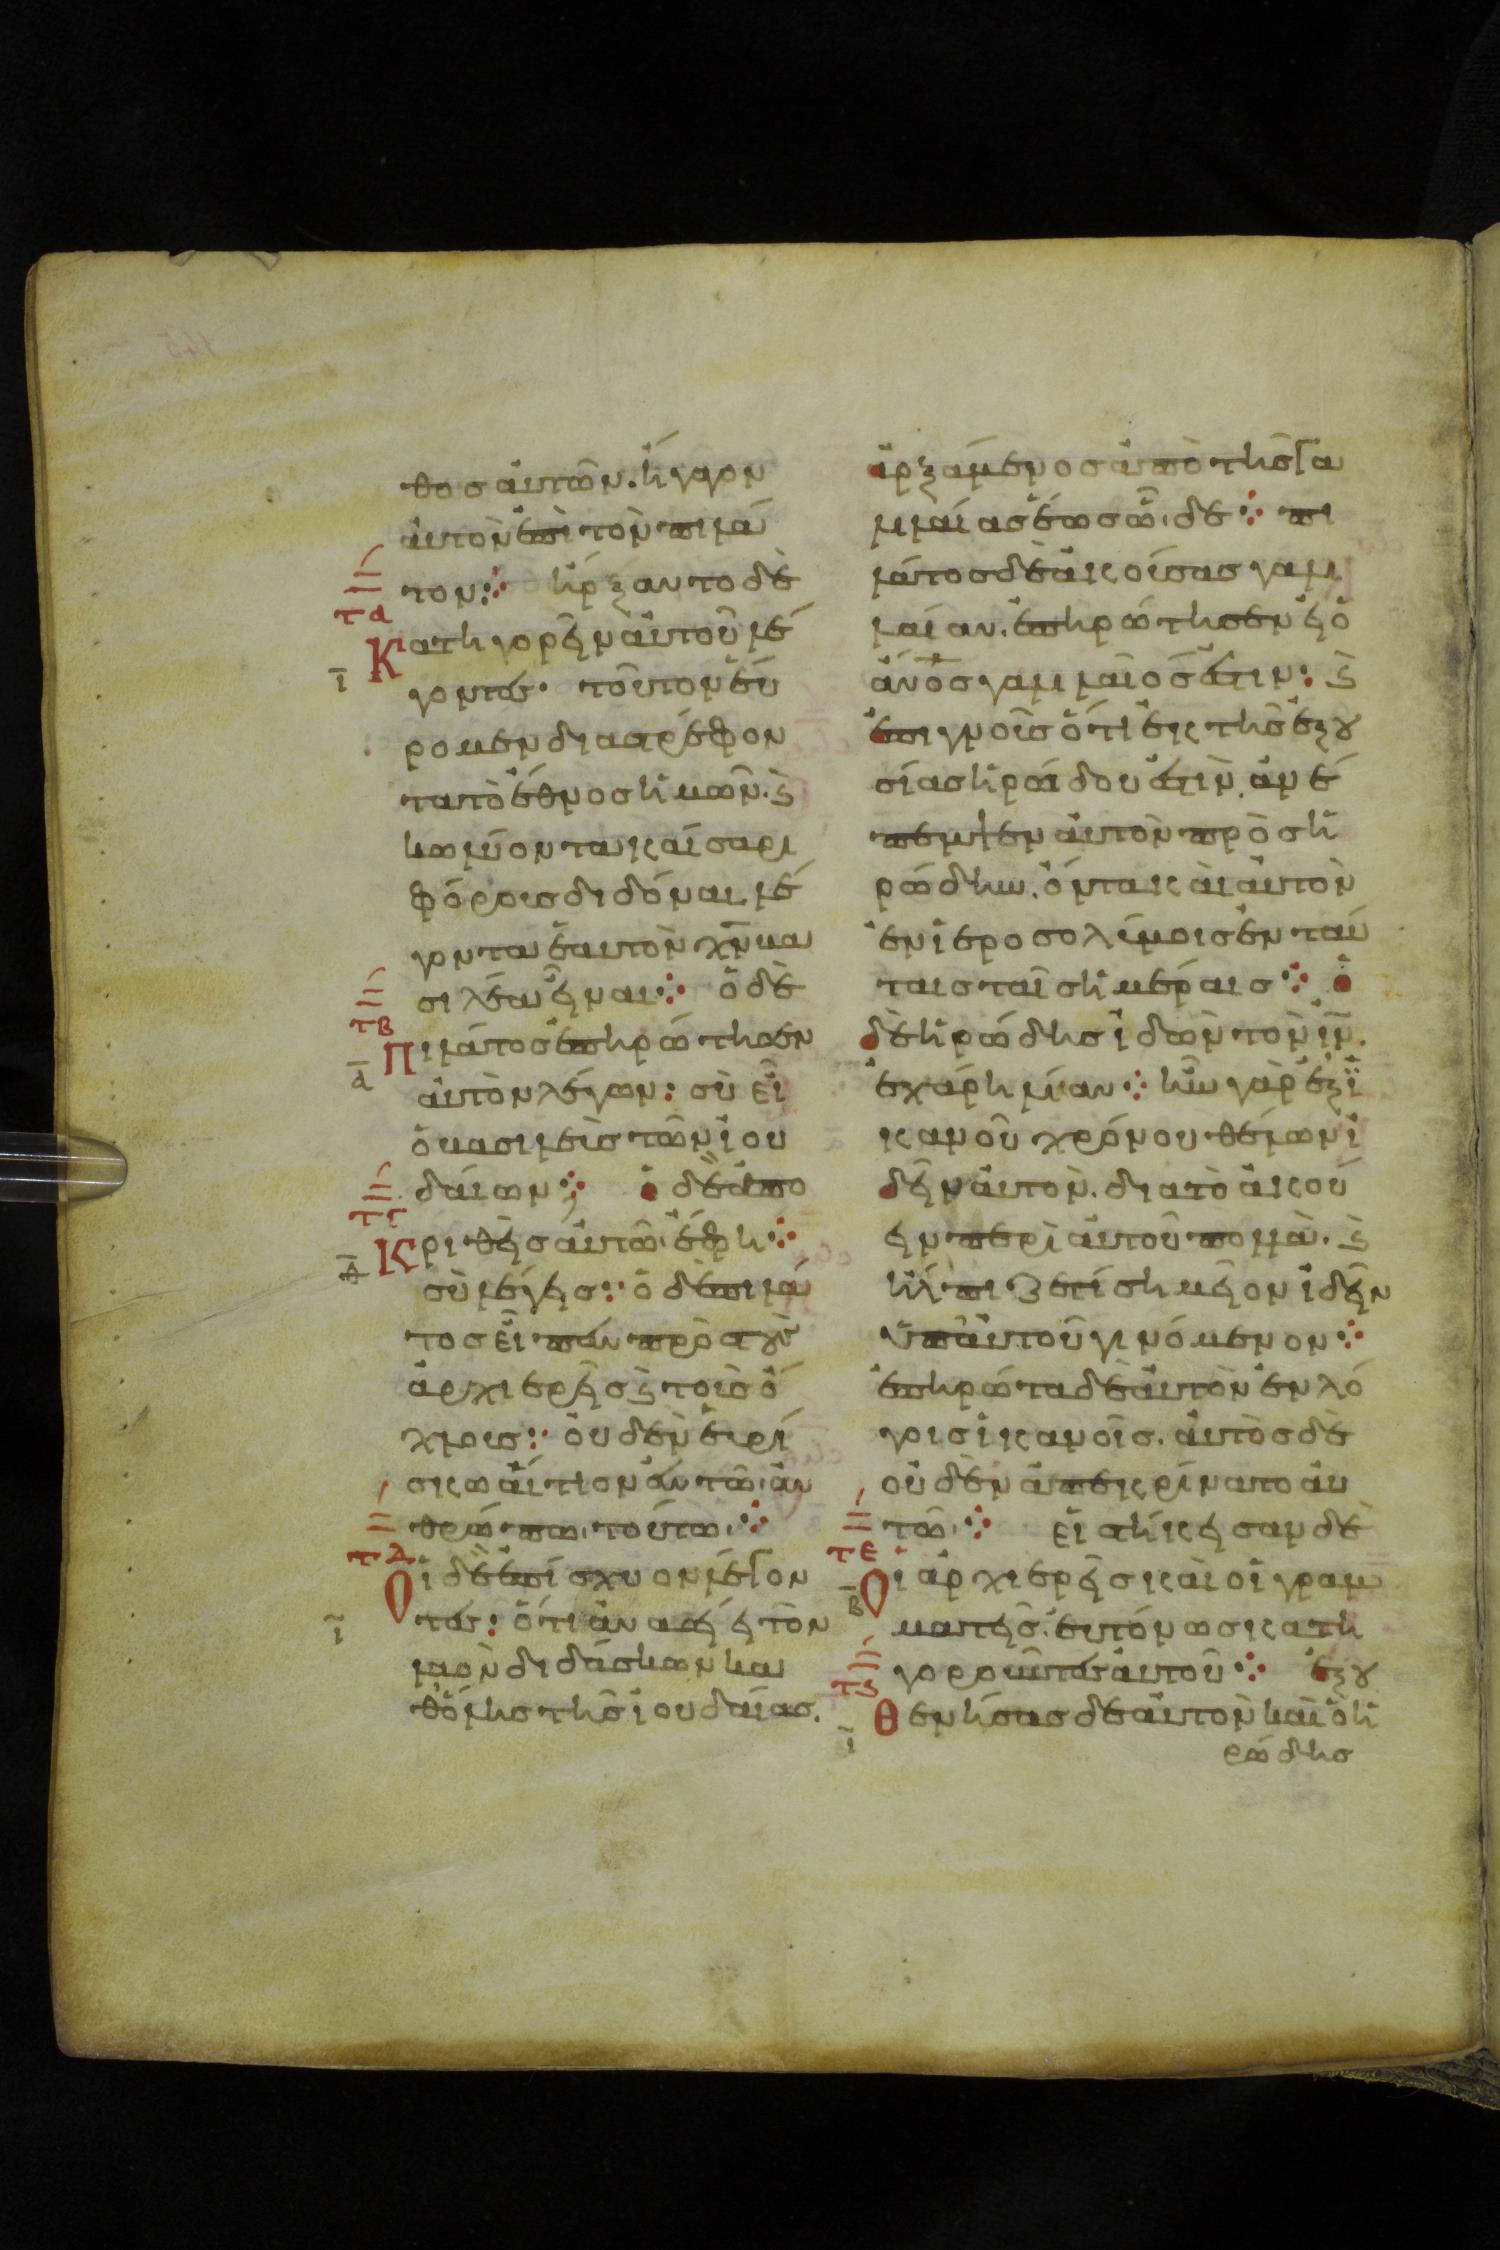 θοσ ἀυτῶν. ἤγαγον
ἀυτὸν ἐπὶ τὸν πιλά
τον: ἤρξαντο δὲ
τα
Κατηγορεῖν ἀυτοῦ λέ
ι
γοντεσ· τοῦτον ἕυ
ρομεν διαστρέφον
τα τὸ ἔθνοσ ἡμῶν. ϗ
κωλύοντα καίσαρι
φόρουσ διδόναι. λέ
γοντα ἑαυτὸν χν βα
σιλέα εἶναι: ὁ δὲ
τβ
Πιλάτοσ ἐπηρώτησεν
α
ἀυτὸν λέγων: σὺ εἶ
ὁ βασιλεὺσ τῶν ἰου
δάιων; ὁ δὲ ἀπο
τγ
Κριθεὶσ ἀυτῶ. ἔφη:
θ
σὺ λέγεισ: ὁ δὲ πιλά
τοσ εἶπεν πρὸσ τοὺσ
ἀρχιερεῖσ ϗ τοὺσ ὄ
χλουσ: ὀυδὲν ἑυρί
σκω ἄιτιον ἐν τῶ ἀν
θρώπω τούτω:
τδ
Οἱ δὲ ἐπίσχυον λέγον
ι
τεσ: ὅτι ἀνασείει τὸν
λαὸν διδάσκων κα
θ' ὅλησ τῆσ ἰουδαίασ.
ἀρξάμενοσ ἀπὸ τῆσ γα
λιλαίασ ἕωσ ὧδε: πι
λάτοσ δὲ ἀκούσασ γαλι
λαίαν. ἐπηρώτησεν εἰ ὁ
ἄνοσ γαλιλαῖοσ ἐστιν: ϗ
ἐπιγνοὺσ ὅτι ἐκ τῆσ ἐξου
σίασ ἡρώδου ἐστὶν. ἀνέ
πεμψεν ἀυτὸν πρὸσ ἡ
ρώδην. ὄντα καὶ ἀυτὸν
ἐν ἱεροσολύμοισ ἐν ταύ
ταισ ταῖσ ἡμέραισ: ὁ
δὲ ἡρώδησ ἰδὼν τὸν ιν.
ἐχάρη λίαν: ἦν γὰρ ἐξ ἱ
κανοῦ χρόνου θέλων ἰ
δεῖν ἀυτὸν. διατὸ ἀκού
ειν περὶ ἀυτοῦ πολλὰ. ϗ
ἤλπιζέ τι σημεῖον ἰδεῖν
ὑπ' ἀυτοῦ γινόμενον:
ἐπηρώτα δὲ ἀυτὸν ἐν λό
γοισ ἱκανοῖσ. ἀυτὸσ δὲ
ὀυδὲν ἀπεκρίνατο ἀυ
τῶ: εἱστήκεισαν δὲ
τε
Οἱ ἀρχιερεῖσ καὶ οἱ γραμ
β
ματεῖσ. ἐυτόνωσ κατη
γοροῦντεσ ἀυτοῦ: ἐξου
τϛ
Θενήσασ δὲ ἀυτὸν καὶ ὁ ἡ
ι
ρώδησ